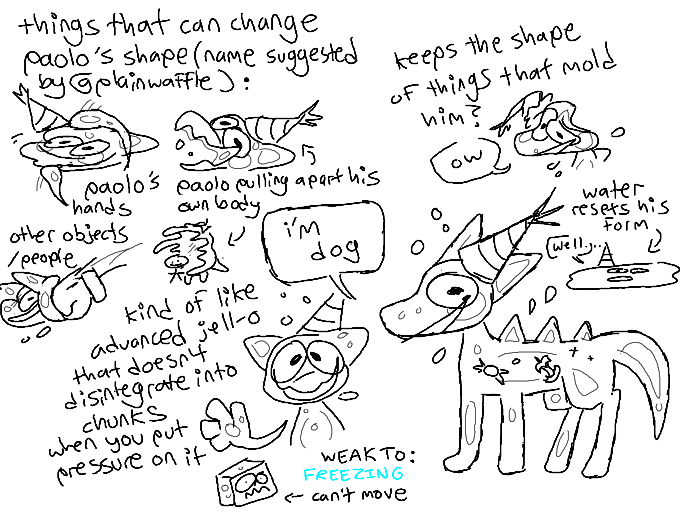 things that can change
paolo's shape (name suggested
by @plainwaffle):
paolo's
hands
paolo pulling apart his
own body
other objects
/people
keeps the shape
of things that mold
him?
ow
water
resets his
form
well...
i'm
dog
kind of like
advanced jell-o
that doesn't
disintegrate into
chunks
when you put
pressure on it
WEAK TO:
FREEZING
← can't move